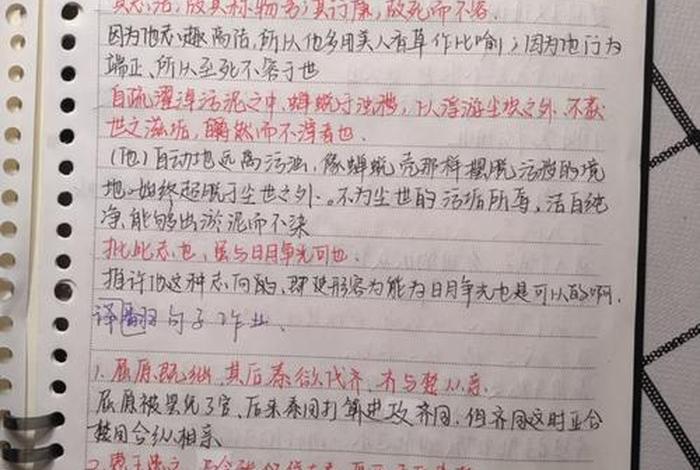 其志洁,故其称物芳;其行廉,故死而不容.
因为他志趣高洁,所以他多用美人香草作比喻;因为他行为
端正、所以至死不容于世
自疏濯淖污泥之中,蝉蜕于浊秽,以浮游尘埃之外,不获
世之滋垢,皭然而不滓者也.
(他)自动地远离污浊,像蝉蜕壳那样摆脱污秽的境
地。始终超脱于尘世之外.。不为尘世的污垢所辱,洁白纯
净,能够出淤泥而不染
推此志也,虽与日月争光可也.
推许他这种志向的,即使形容为能为日月争光也是可以的啊.
译 句子作业、
1. 屈原既绌,其后秦欲伐齐,齐与楚从亲.
屈原被罢免了官、后来秦国打算进攻齐国,但齐国这时正合
楚国合纵相亲
2.